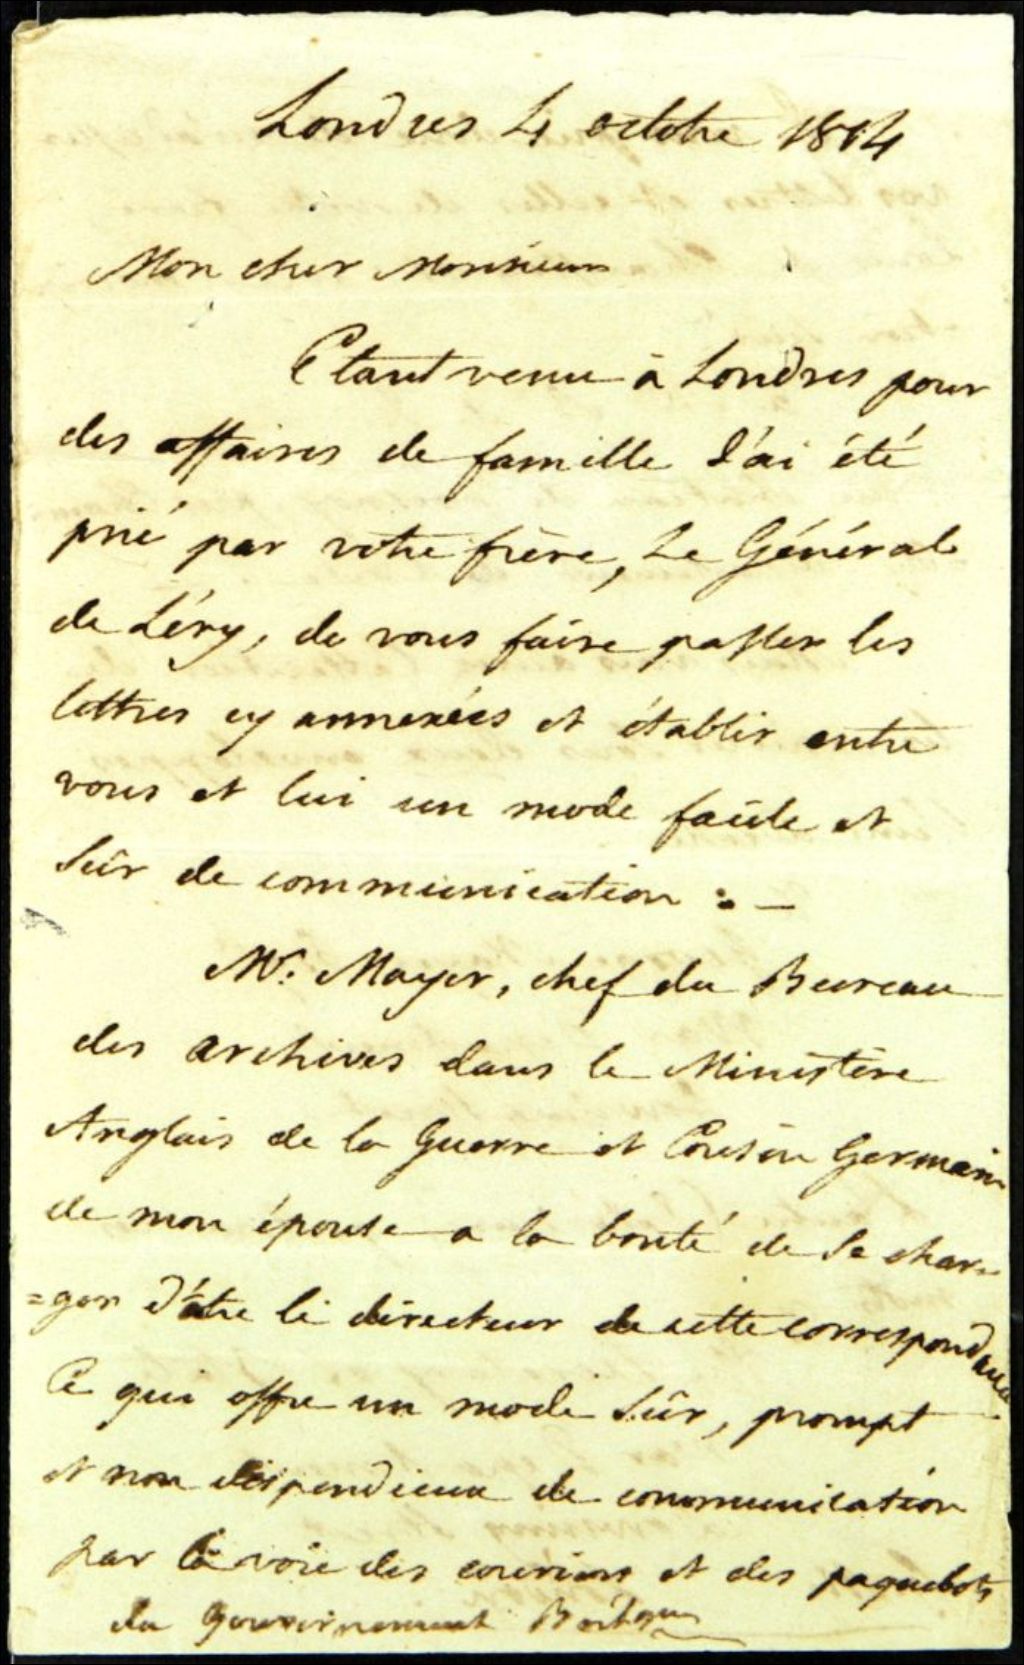 Londres 4 octobre 1814
Mon cher Monsieur
Etant venu à Londres pour
des affaires de famille J'ai été
prié par votre frère, Le Général
de Léry, de vous faire passer les
lettres cy annexées et établir entre
vous et lui un mode facile et
Sûr de communication : —
Mr. Mayer, chef du Bureau
des archives dans le Ministère
Anglais de la Guerre et Cousin Germain
de mon épouse a la bonté de Se char-
=ger d'être le directeur de cette correspondance
Ce qui offre un mode Sûr, prompt
et non dispendieux de communication
par la voie des couriers et des paquebots
du Gouvernement